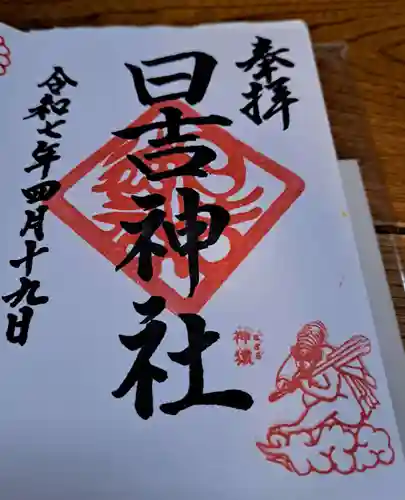 奉拝
日吉神社
神猿
令和七年四月十九日